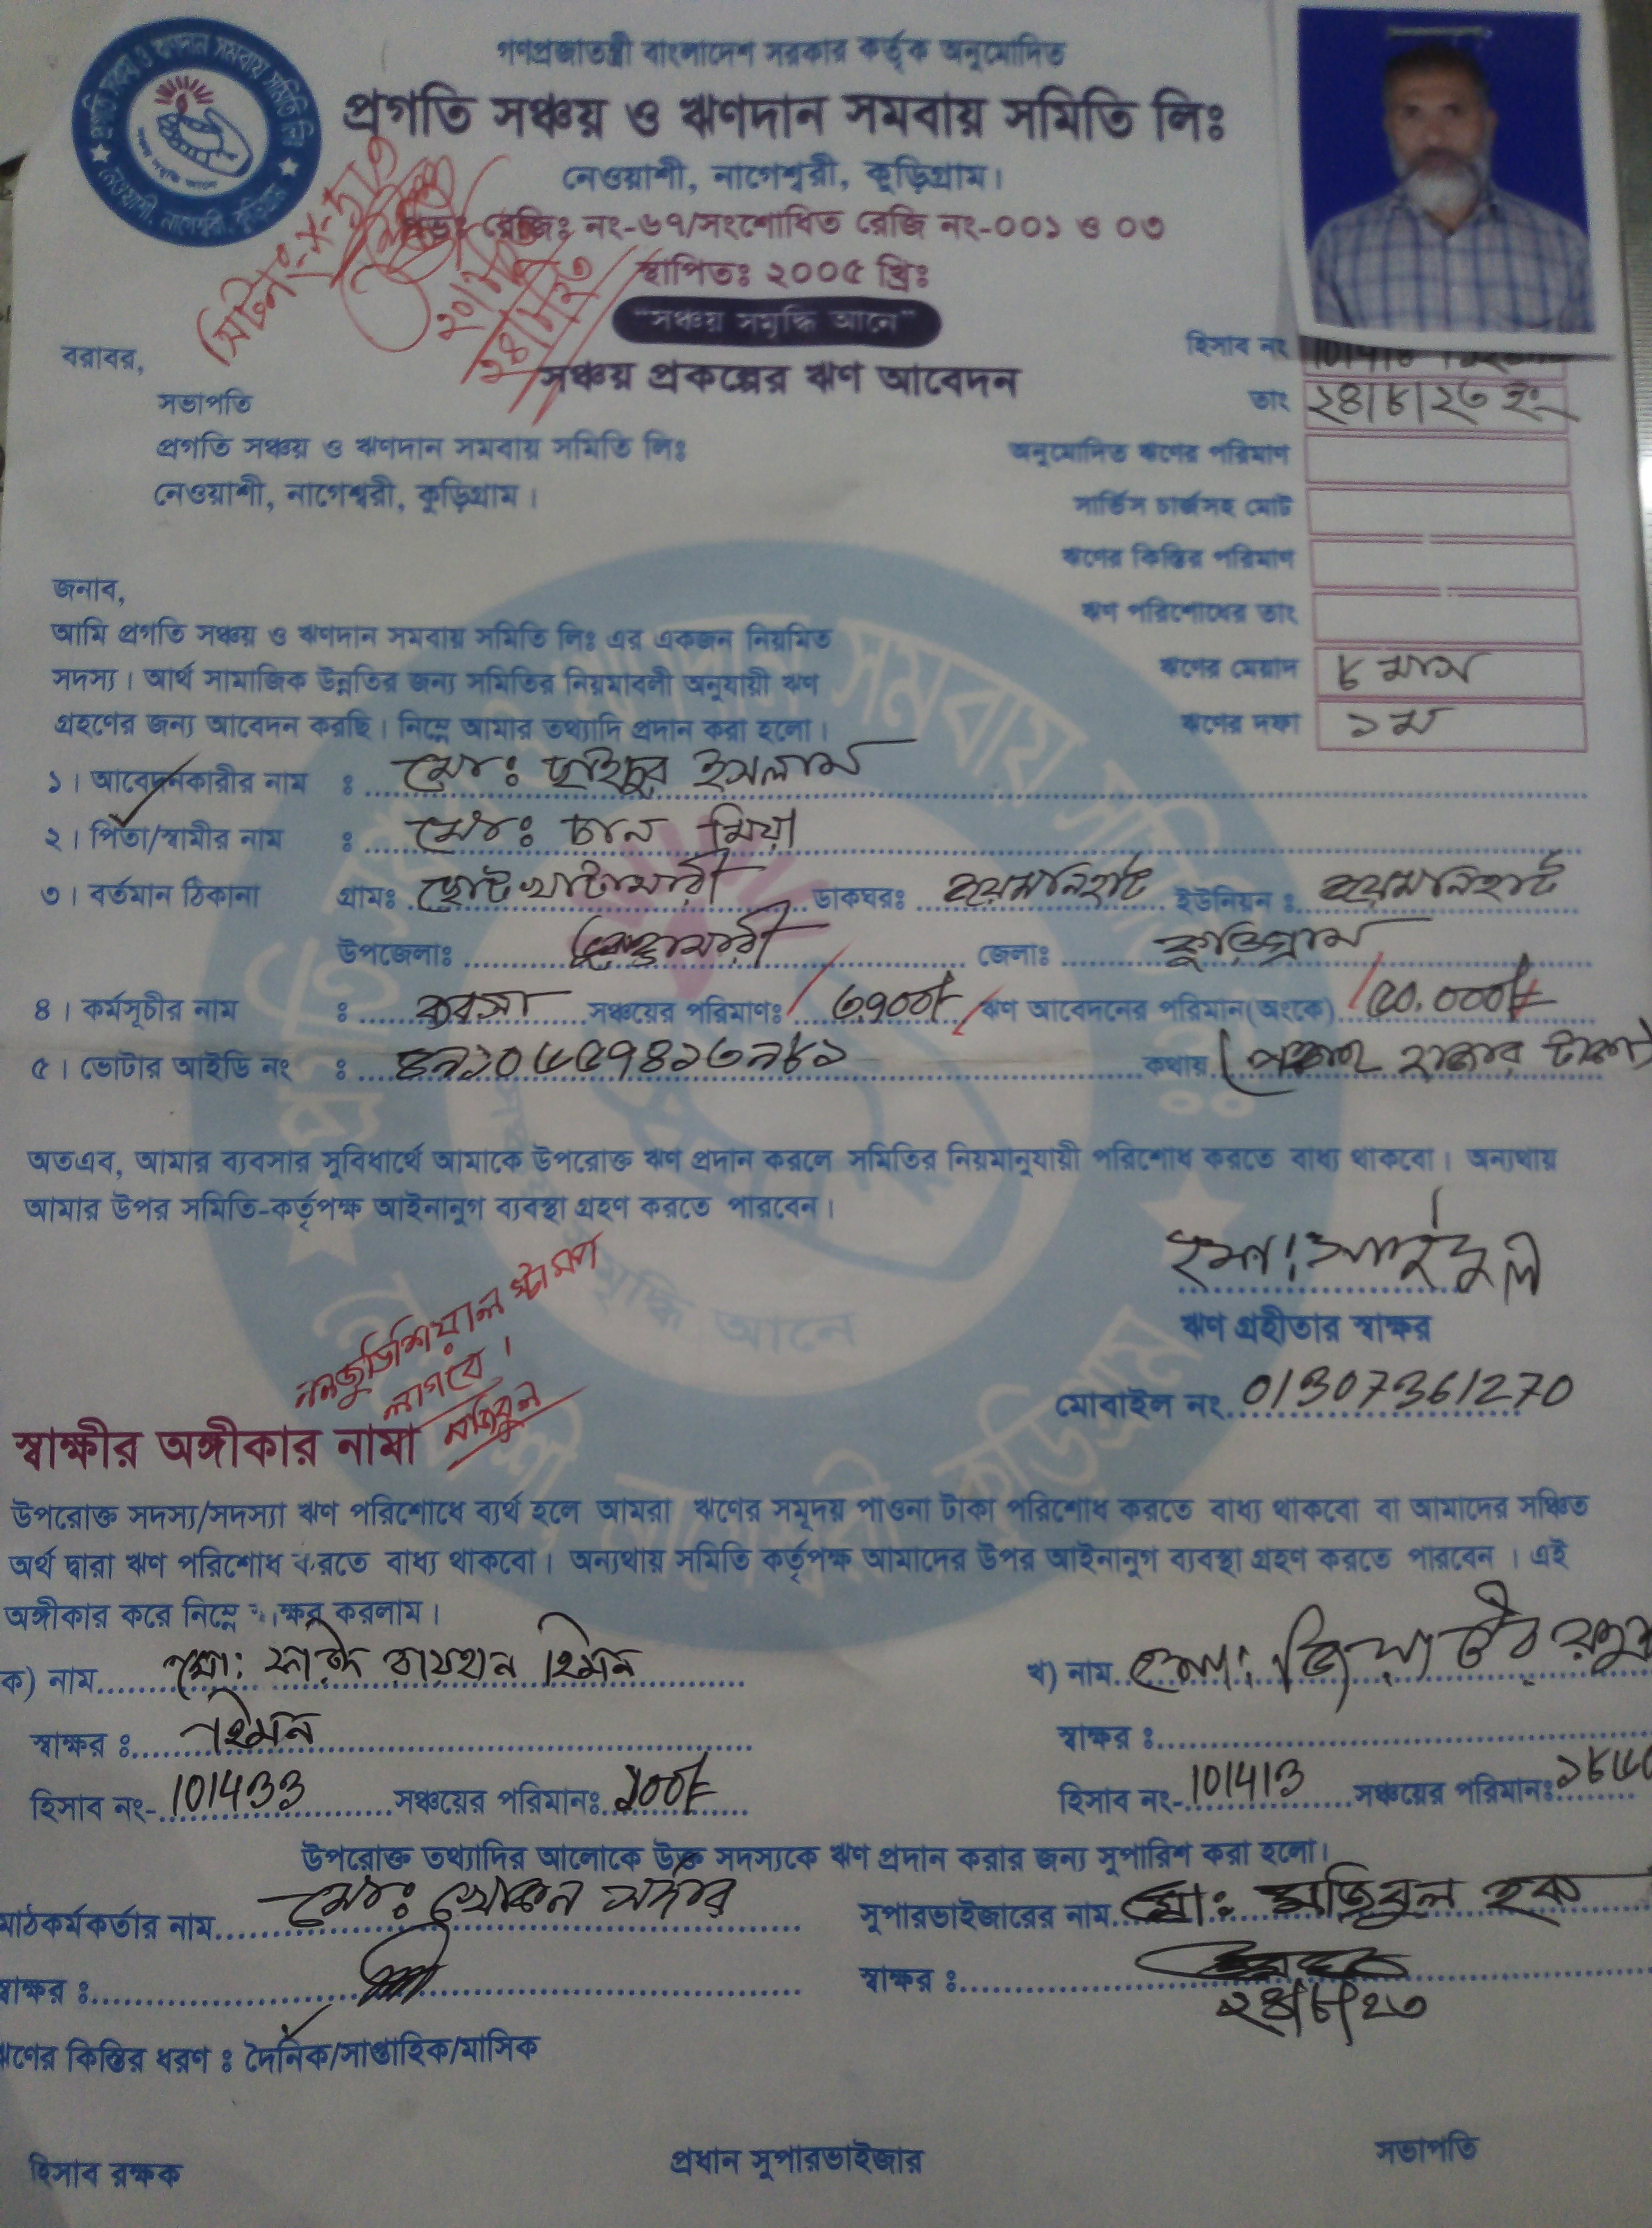 গণপ্রজাতন্ত্রী বাংলাদেশ সরকার কর্তৃক অনুমোদিত
প্রগতি সঞ্চয় ও ঋণদান সমবায় সমিতি লিঃ
নেওয়াশী, নাগেশ্বরী, কুড়িগ্রাম।
রেজিঃ নং-৬৭/সংশোধিত রেজি নং-০০১ ও ০৩
স্থাপিতঃ ২০০৫ খ্রিঃ
"সঞ্চয় সমৃদ্ধি আনে"
সঞ্চয় প্রকল্পের ঋণ আবেদন
হিসাব নং
তাং ২৪/৮/২৩ ইং
অনুমোদিত ঋণের পরিমাণ
সার্ভিস চার্জসহ মোট
ঋণের কিস্তির পরিমাণ
ঋণ পরিশোধের তাং
ঋণের মেয়াদ ৮ মাস
ঋণের দফা ১ম
বরাবর,
সভাপতি
প্রগতি সঞ্চয় ও ঋণদান সমবায় সমিতি লিঃ
নেওয়াশী, নাগেশ্বরী, কুড়িগ্রাম।
জনাব,
আমি প্রগতি সঞ্চয় ও ঋণদান সমবায় সমিতি লিঃ এর একজন নিয়মিত
সদস্য। আর্থ সামাজিক উন্নতির জন্য সমিতির নিয়মাবলী অনুযায়ী ঋণ
গ্রহণের জন্য আবেদন করছি। নিম্নে আমার তথ্যাদি প্রদান করা হলো।
১। আবেদনকারীর নাম : মোঃ ছাইদুর ইসলাম
২। পিতা/স্বামীর নাম : মোঃ চান মিয়া
৩। বর্তমান ঠিকানা গ্রামঃ ছোট খাটামারী ডাকঘরঃ জয়মনিরহাট ইউনিয়ন : জয়মনিরহাট
উপজেলাঃ ভুরুঙ্গামারী জেলাঃ কুড়িগ্রাম
৪। কর্মসূচীর নাম : ব্যবসা সঞ্চয়ের পরিমাণঃ ৩৭০০/- ঋণ আবেদনের পরিমান(অংকে) ৫০,০০০/-
৫। ভোটার আইডি নং : কথায় (পঞ্চাশ হাজার টাকা)
অতএব, আমার ব্যবসার সুবিধার্থে আমাকে উপরোক্ত ঋণ প্রদান করলে সমিতির নিয়মানুযায়ী পরিশোধ করতে বাধ্য থাকবো। অন্যথায়
আমার উপর সমিতি-কর্তৃপক্ষ আইনানুগ ব্যবস্থা গ্রহণ করতে পারবেন।
ঋণ গ্রহীতার স্বাক্ষর
মোবাইল নং 01307361270
ননজুডিশিয়াল স্ট্যাম্প
লাগবে।
মজিবুল
স্বাক্ষীর অঙ্গীকার নামা
উপরোক্ত সদস্য/সদস্যা ঋণ পরিশোধে ব্যর্থ হলে আমরা ঋণের সমূদয় পাওনা টাকা পরিশোধ করতে বাধ্য থাকবো বা আমাদের সঞ্চিত
অর্থ দ্বারা ঋণ পরিশোধ করতে বাধ্য থাকবো। অন্যথায় সমিতি কর্তৃপক্ষ আমাদের উপর আইনানুগ ব্যবস্থা গ্রহণ করতে পারবেন। এই
অঙ্গীকার করে নিম্নে স্বাক্ষর করলাম।
ক) নাম মোঃ রায়হান হিমন
খ) নাম মোঃ
স্বাক্ষর : হিমন
স্বাক্ষর :
হিসাব নং- 101433 সঞ্চয়ের পরিমানঃ ১০০/-
হিসাব নং- 101413 সঞ্চয়ের পরিমানঃ
উপরোক্ত তথ্যাদির আলোকে উক্ত সদস্যকে ঋণ প্রদান করার জন্য সুপারিশ করা হলো।
মাঠকর্মকর্তার নাম মোঃ খোকন সর্দার
সুপারভাইজারের নাম মোঃ মজিবুল হক
স্বাক্ষর :
স্বাক্ষর :
২৪/৮/২৩
ঋণের কিস্তির ধরণ : দৈনিক/সাপ্তাহিক/মাসিক
হিসাব রক্ষক
প্রধান সুপারভাইজার
সভাপতি